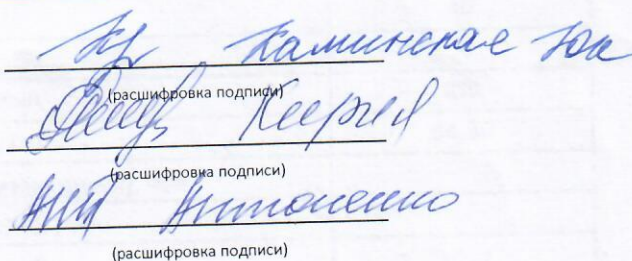 Каминская Юл
(расшифровка подписи)
(расшифровка подписи)
Ант Антоненко
(расшифровка подписи)